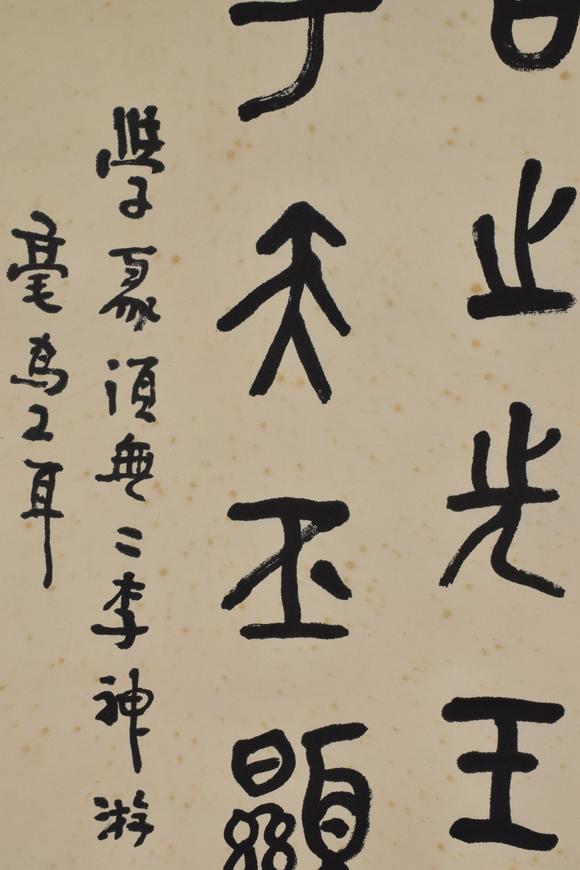 止先王
天丕顯
學篆須無二李神游
毫為工耳